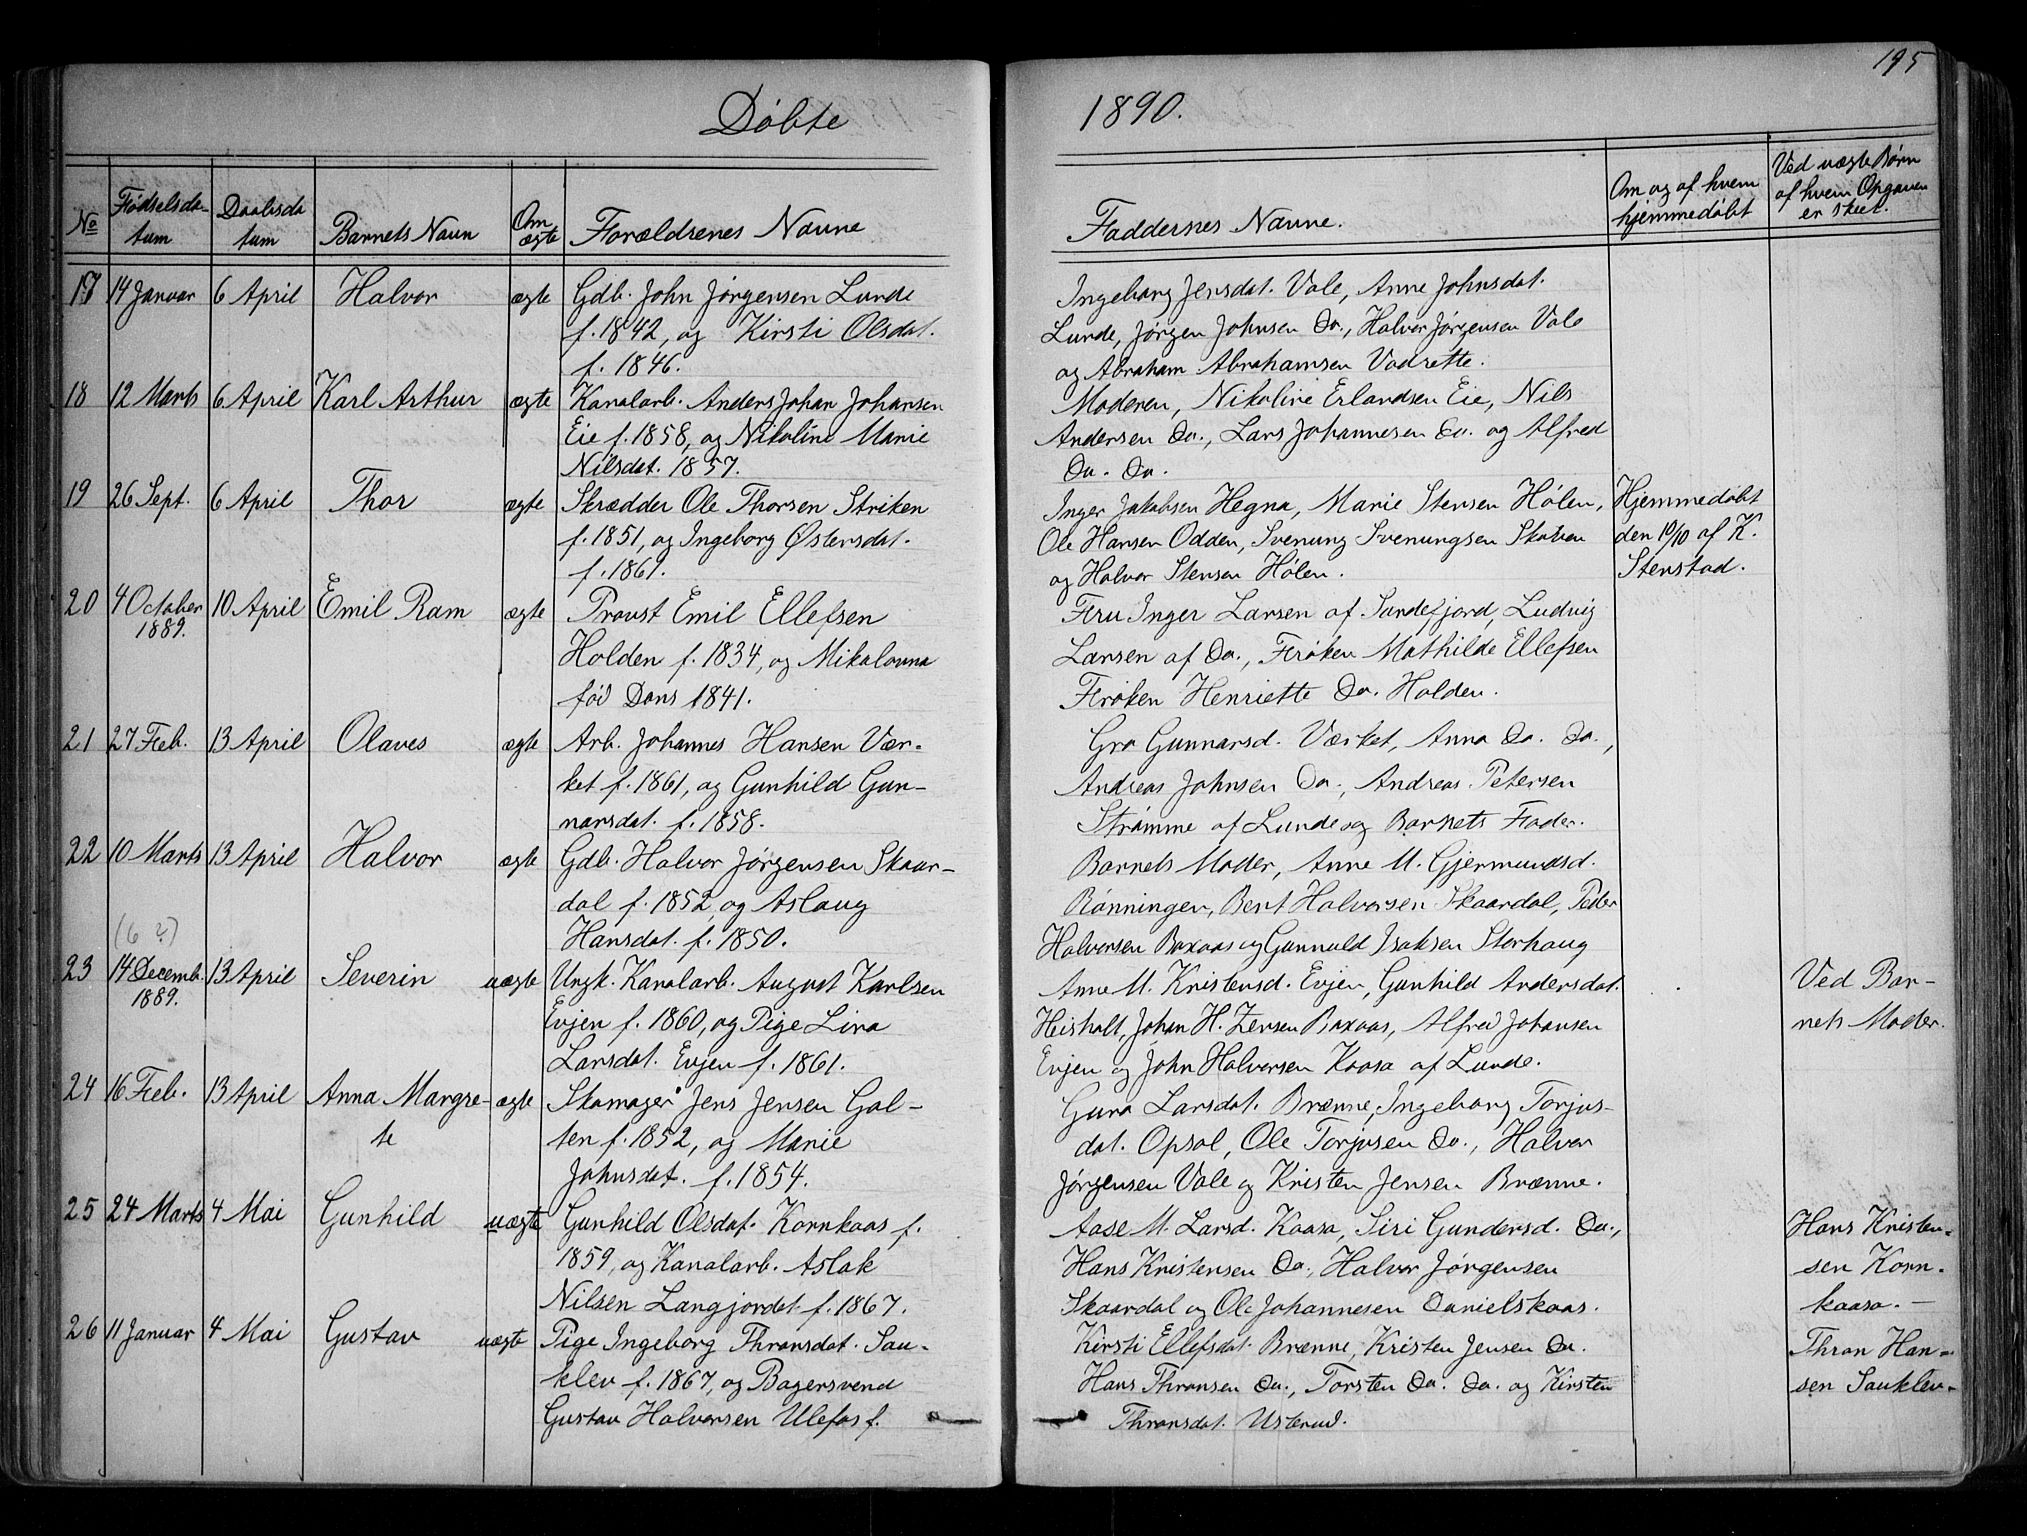 195
Døbte
1890.
No
Fødselsda-
tum
Daabsda
tum
Barnets Navn
Om
ægte
Forældrenes Navne
Faddernes Navne.
Om og af hvem
hjemmedøbt
Ved uægte Børn
af hvem Opgaven
er skeet.
17 14 Januar 6 April Halvor ægte Gdb. John Jørgensen Lunde
f. 1842, og Kirsti Olsdat.
f. 1846.
Ingeborg Jensdat. Vale, Anne Johnsdat.
Lunde, Jørgen Johnsen Do., Halvor Jørgensen Vale
og Abraham Abrahamsen Vadrette.
18 12 Marts 6 April Karl Arthur ægte Kanalarb. Anders Johan Johansen
Eie f. 1858, og Nikoline Marie
Nilsdat. 1857.
Moderen, Nikoline Erlandsen Eie, Nils
Andersen Do., Lars Johannesen Do. og Alfred
Do. Do.
19 26 Sept. 6 April Thor ægte Skrædder Ole Thorsen Striken
f. 1851, og Ingeborg Østensdat.
f. 1861.
Inger Jakobsen Hegna, Marie Stensen Hølen,
Ole Hansen Odden, Svenung Svenungsen Skoben
og Halvor Stensen Hølen.
Hjemmedøbt
den 10/10 af K.
Stenstad.
20 4 October 10 April Emil Ram ægte Provst Emil Ellefsen
1889.
Holden f. 1834, og Mikalovna
fød Dons 1841.
Fru Inger Larsen af Sandefjord, Ludvig
Larsen af Do., Frøken Mathilde Ellefsen
Frøken Henriette Do. Holden.
21 27 Feb. 13 April Olaves ægte Arb. Johannes Hansen Vær-
ket f. 1861, og Gunhild Gun-
narsdat. f. 1858.
Gro Gunnarsd. Værket, Anna Do. Do.,
Andreas Johnsen Do., Andreas Petersen
Strømme af Lunde og Barnets Fader.
22 10 Marts 13 April Halvor ægte Gdb. Halvor Jørgensen Skaar-
dal f. 1852, og Aslaug
Hansdat. f. 1850.
Barnets Moder, Anne M. Gjermundsd.
Rønningen, Bert Halvorsen Skaardal, Peder
Halvorsen Baxaas og Gunnuld Isaksen Storhaug
(6 ?)
23 14 Decemb. 13 April Severin uægte Ungk. Kanalarb. August Karlsen
1889.
Evjen f. 1860, og Pige Lina
Larsdat. Evjen f. 1861.
Anne M. Kristensd. Evjen, Gunhild Andersdat.
Heisholt, Johan H. Zensen Baxaas, Alfred Johansen
Evjen og John Halvorsen Kaasa af Lunde.
Ved Bar-
nets Moder.
24 16 Feb. 13 April Anna Margre- ægte Skomager Jens Jensen Gal-
te
ten f. 1852, og Marie
Johnsdat. f. 1854.
Guro Larsdat. Brænne, Ingeborg Torjus-
dat. Opsal, Ole Torjusen Do., Halvor
Jørgensen Vale og Kristen Jensen Brænne.
25 24 Marts 4 Mai Gunhild uægte Gunhild Olsdat. Kornkaas f.
1859, og Kanalarb. Aslak
Nilsen Langjordet f. 1867.
Aase M. Larsd. Kaasa, Siri Gundersd. Do.,
Hans Kristensen Do., Halvor Jørgensen
Skaardal og Ole Johannesen Danielskaas.
Hans Kristen-
sen Korn-
kaasa. -
26 11 Januar 4 Mai Gustav uægte Pige Ingeborg Thronsdat. Sau-
klev f. 1867, og Bagersvend
Gustav Halvorsen Ulefos f.
Kirsti Ellefsdat. Brænne, Kristen Jensen Do.
Hans Thronsen Do., Torsten Do. Do. og Kirsten
Thronsdat. Usterud.
Thron Han-
sen Sauklev.